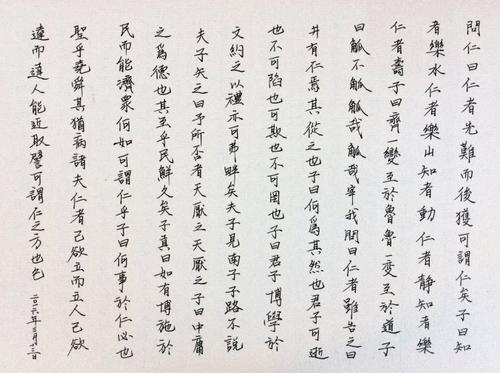 問仁曰仁者先難而後獲可謂仁矣子曰知
者樂水仁者樂山知者動仁者靜知者樂
仁者壽子曰齊一變至於魯魯一變至於道子
曰觚不觚觚哉觚哉宰我問曰仁者雖告之曰
井有仁焉其從之也子曰何為其然也君子可逝
也不可陷也可欺也不可罔也子曰君子博學於
文約之以禮亦可弗畔矣夫子見南子子路不說
夫子矢之曰予所否者天厭之天厭之子曰中庸
之為德也其至乎民鮮久矣子貢曰如有博施於
民而能濟眾何如可謂仁乎子曰何事於仁必也
聖乎堯舜其猶病諸夫仁者己欲立而立人己欲
達而達人能近取譬可謂仁之方也已